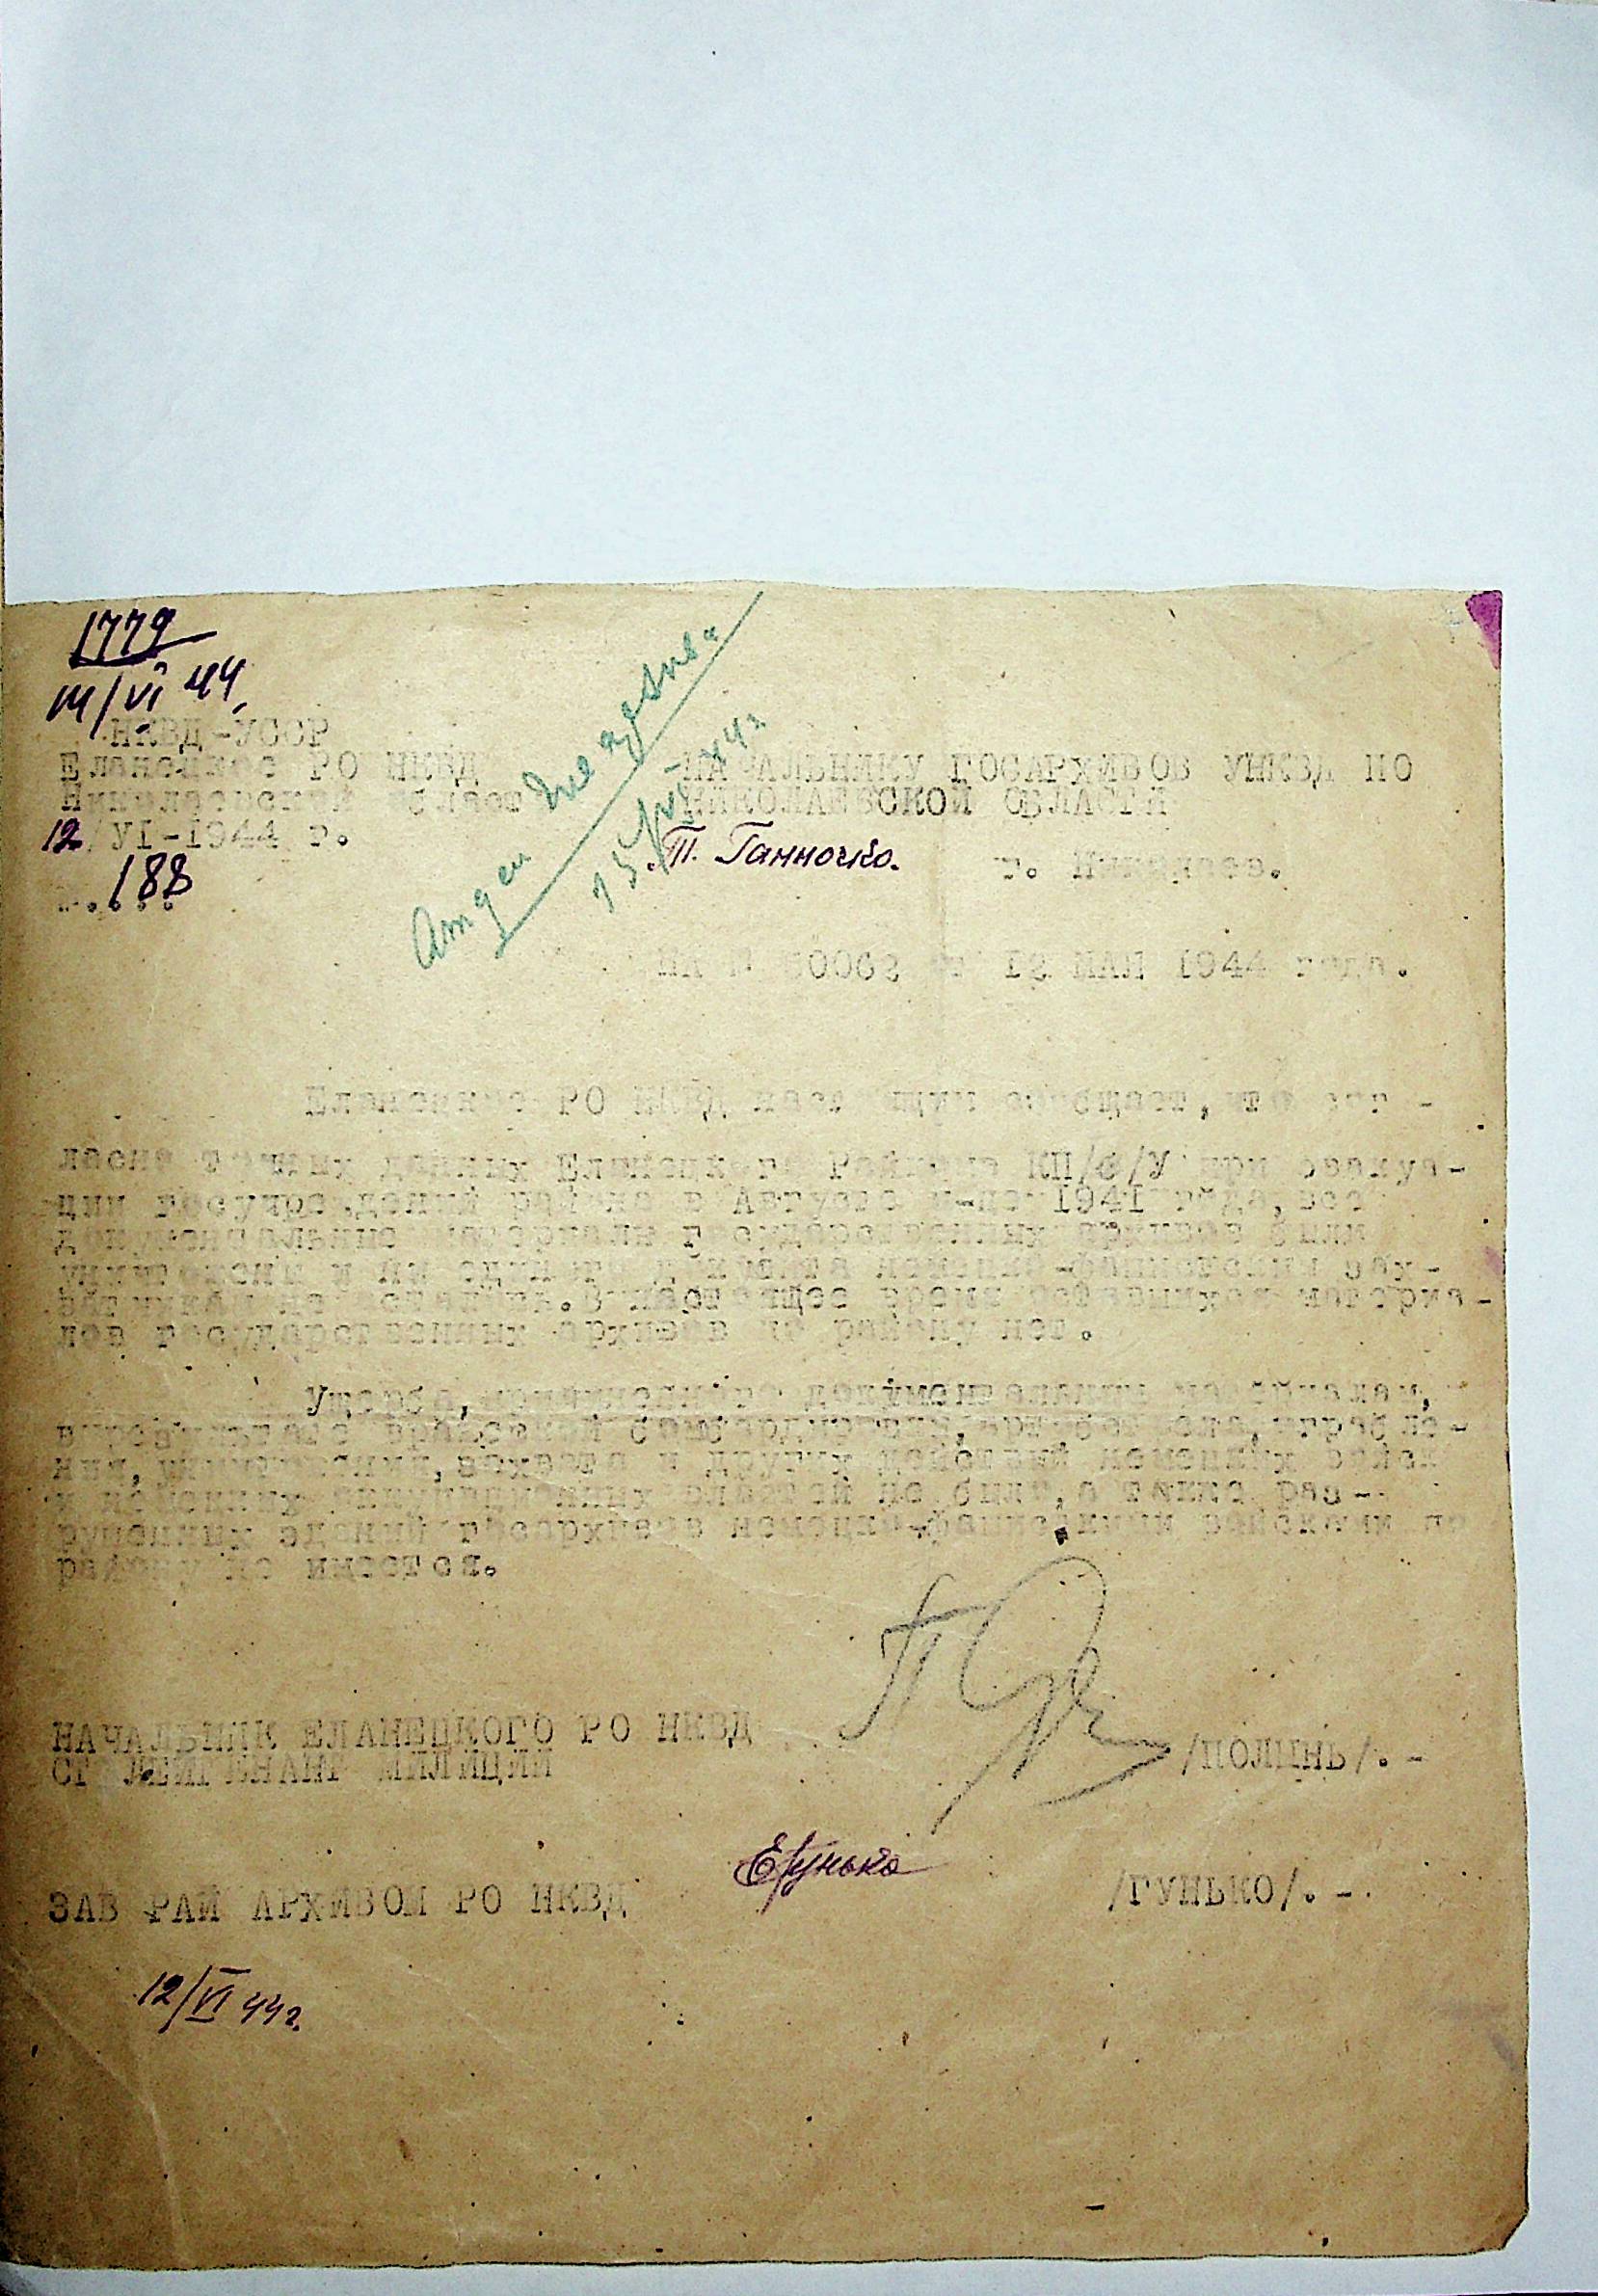 1779
14/VI 44
НКВД-УССР
Еланецкое РО НКВД
Николаевской област
12/УI-1944 г.
188
НАЧАЛЬНИКУ ГОСАРХИВОВ УНКВД ПО
НИКОЛАЕВСКОЙ ОБЛАСТИ
т. Ганночко.
г. Николаев.
15/VI-44г.
НА № 30062 от 19 МАЯ 1944 года.
Еланецкое РО НКВД настоящим сообщает, что сог-
ласно точных данных Еланецкого Райкома КП/б/У при эвакуа-
ции госучреждений района в Августе м-це 1941 года, все
документальные материалы государственных архивов были
уничтожены и ни один немецко-фашистским зах-
ватчикам не В настоящее время оставшихся материа-
лов государственных архивов по району нет.
Ущерба, документальным материалам,
ограбле-
ния, уничтожения, захвата и других действий немецких войск
и немецких оккупационных властей не было, а также раз-
рушенных зданий госархивов немецко-фашистскими войсками по
району не имеется.
НАЧАЛЬНИК ЕЛАНЕЦКОГО РО НКВД
СТ ЛЕЙТЕНАНТ МИЛИЦИИ
/ПОЛЦНЬ/.-
ЗАВ РАЙ АРХИВОМ РО НКВД
ЕГунько
/ГУНЬКО/.-
12/VI 44г.